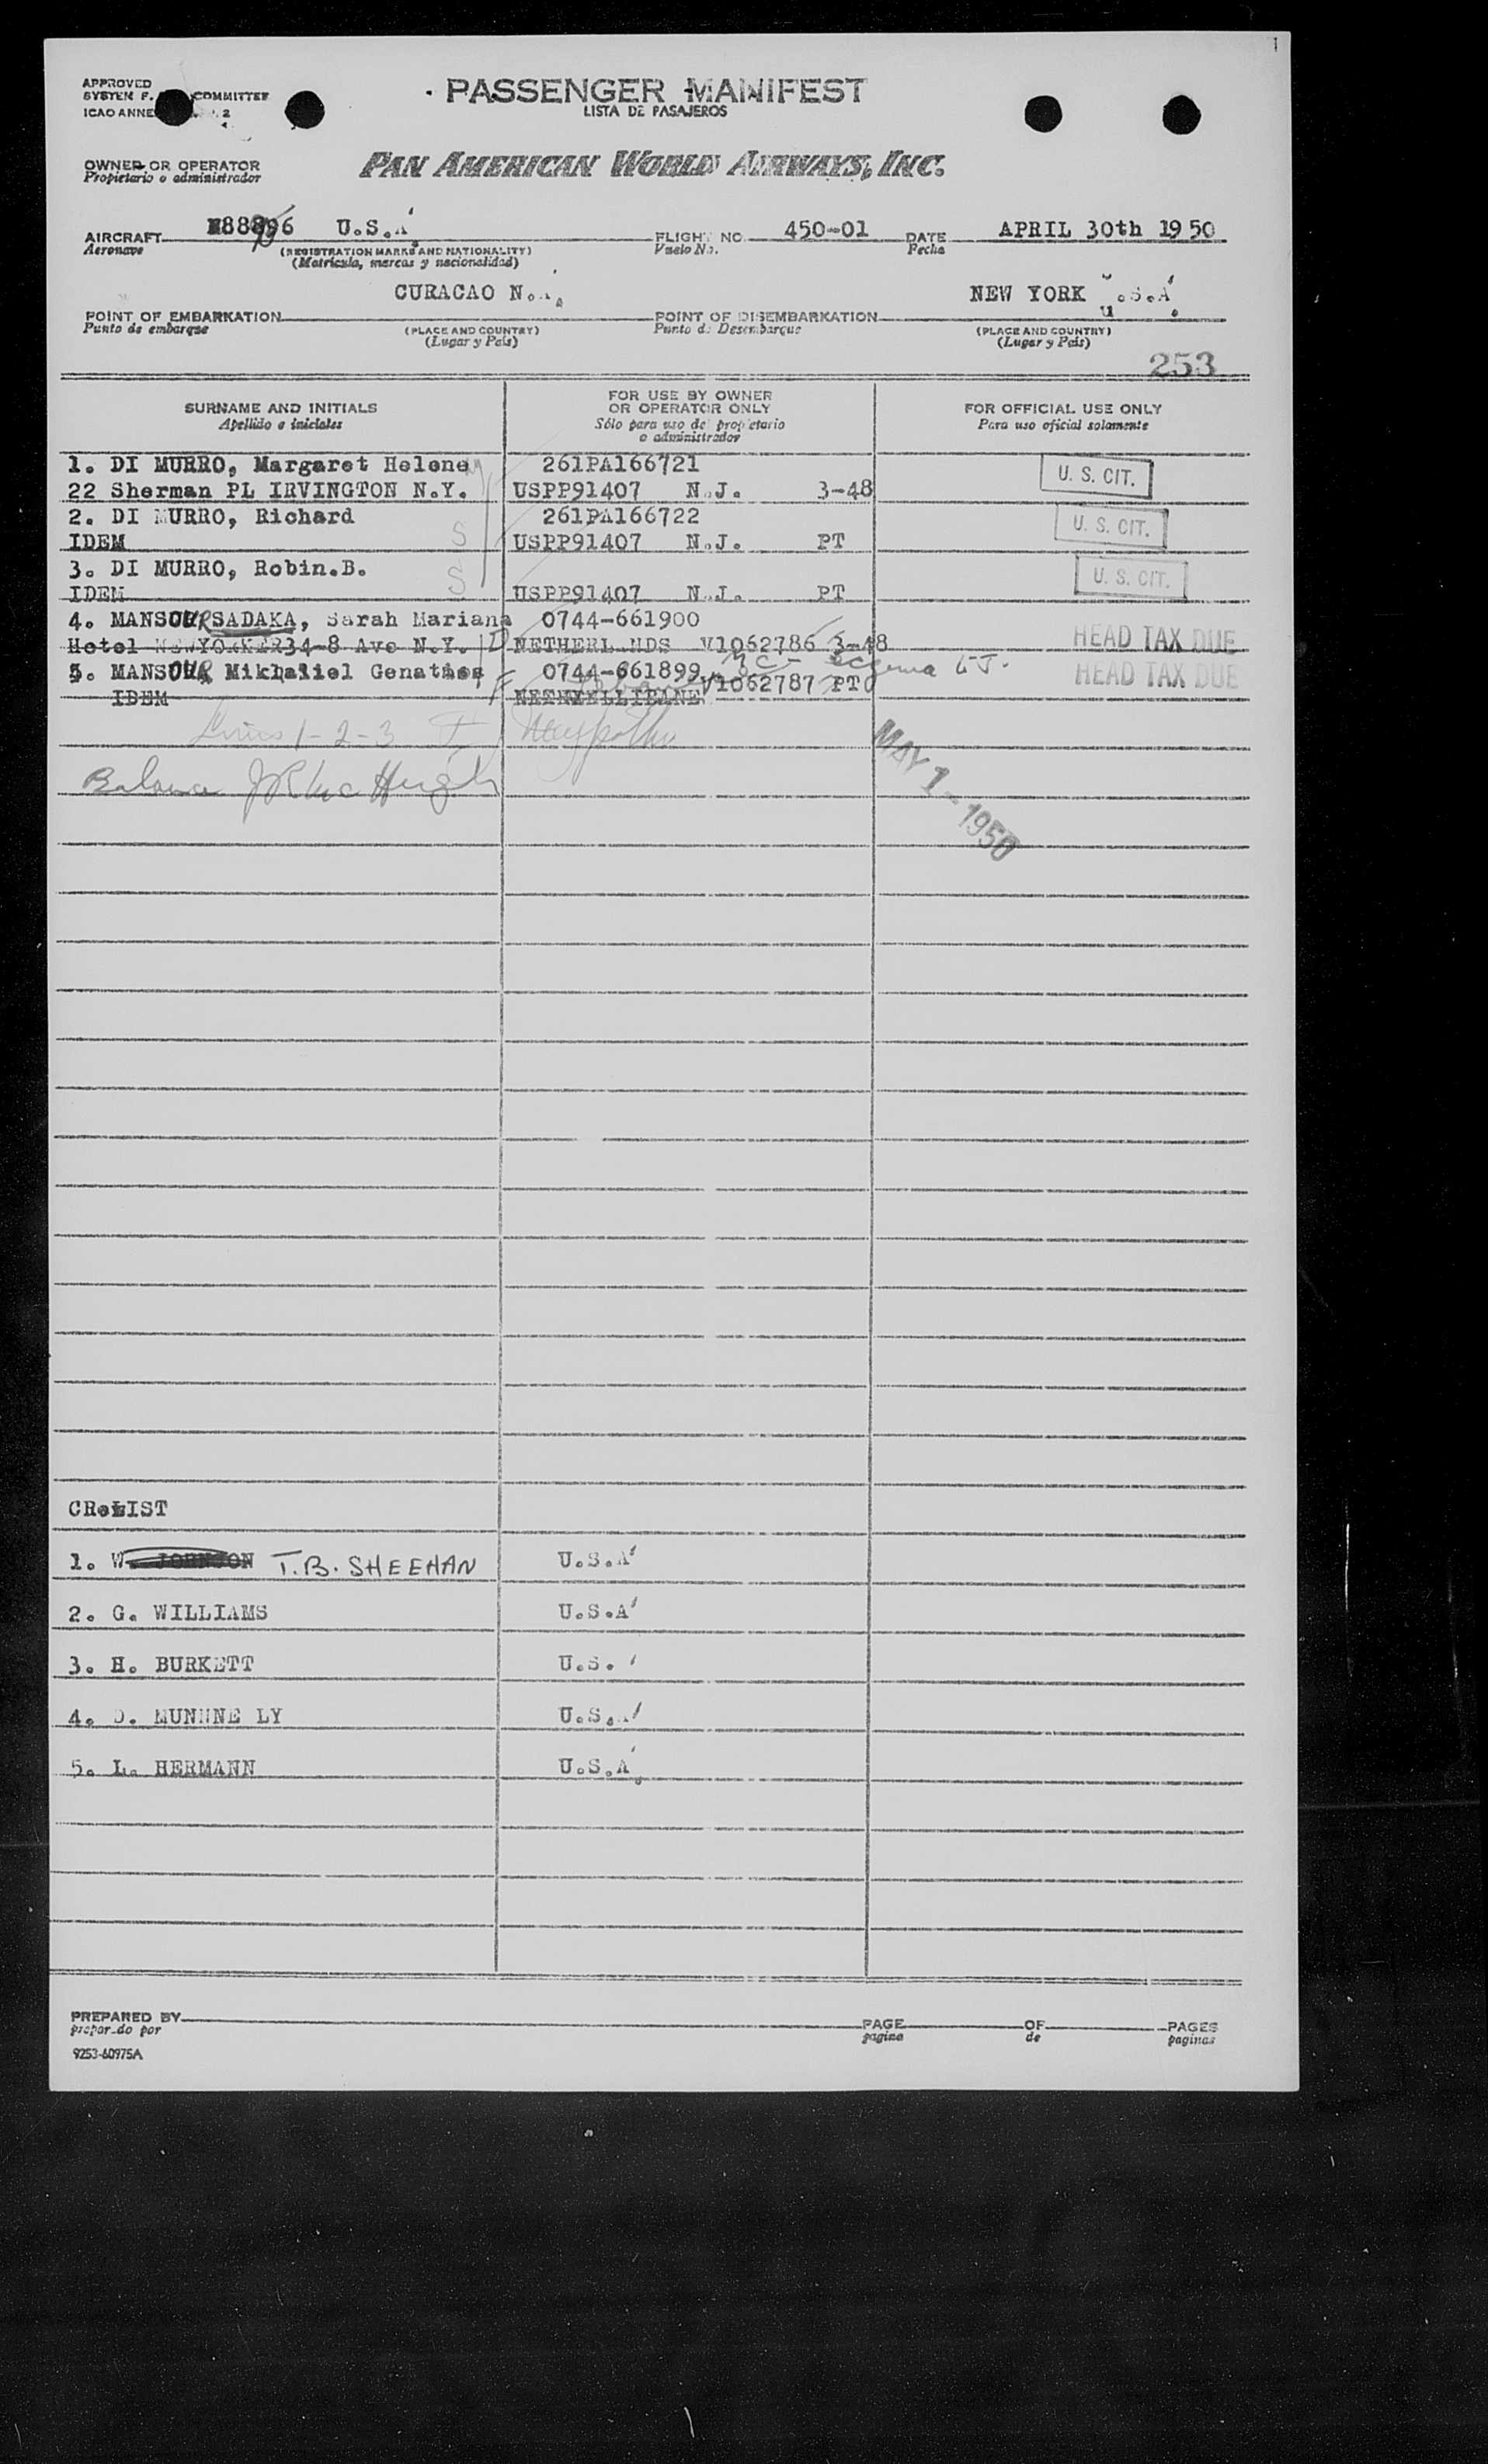 1
APPROVED
COMMITTEE
ICAO ANNE 2
PASSENGER MANIFEST
LISTA DE PASAJEROS
OWNER OR OPERATOR
Propietario o administrador
PAN AMERICAN WORLD AIRWAYS, INC.
AIRCRAFT U.S.A FLIGHT NO. 450-01 DATE APRIL 30th 19 50
Aeronave (REGISTRATION MARKS AND NATIONALITY) Vuelo No. Fecha
(Matrícula, marcas y nacionalidad)
CURACAO NEW YORK U.S.A.
POINT OF EMBARKATION POINT OF DISEMBARKATION
Punto de embarque (PLACE AND COUNTRY) Punto de Desembarque (PLACE AND COUNTRY)
(Lugar y País) (Lugar y País)
253
SURNAME AND INITIALS FOR USE BY OWNER OR OPERATOR ONLY FOR OFFICIAL USE ONLY
Apellido e iniciales Sólo para uso del propietario o administrador Para uso oficial solamente
1. DI MURRO, Margaret Helene 261PA166721 U. S. CIT.
22 Sherman PL IRVINGTON N.Y. USPP91407 N.J. 3-48
2. DI MURRO, Richard 261PA166722 U. S. CIT.
IDEM S USPP91407 N.J. PT
3. DI MURRO, Robin.B. U. S. CIT.
IDEM S USPP91407 N.J. PT
4. MANSOUR SADAKA, Sarah Mariana 0744-661900
Hotel NEWYORKER34-8 Ave N.Y. NETHERLANDS V1062786 3-48 HEAD TAX DUE
5. MANSOUR Mikhaliel 0744-661899 HEAD TAX DUE
IDEM V1062787 PT
Lines 1-2-3
Balance
MAY 1 - 1950
1. W. JOHNSON T.B. SHEEHAN U.S.A
2. G. WILLIAMS U.S.A
3. H. BURKETT U.S.
4. D. U.S.A
5. L. HERMANN U.S.A.
PREPARED BY PAGE OF PAGES
preparado por pagina de paginas
9253-60975A